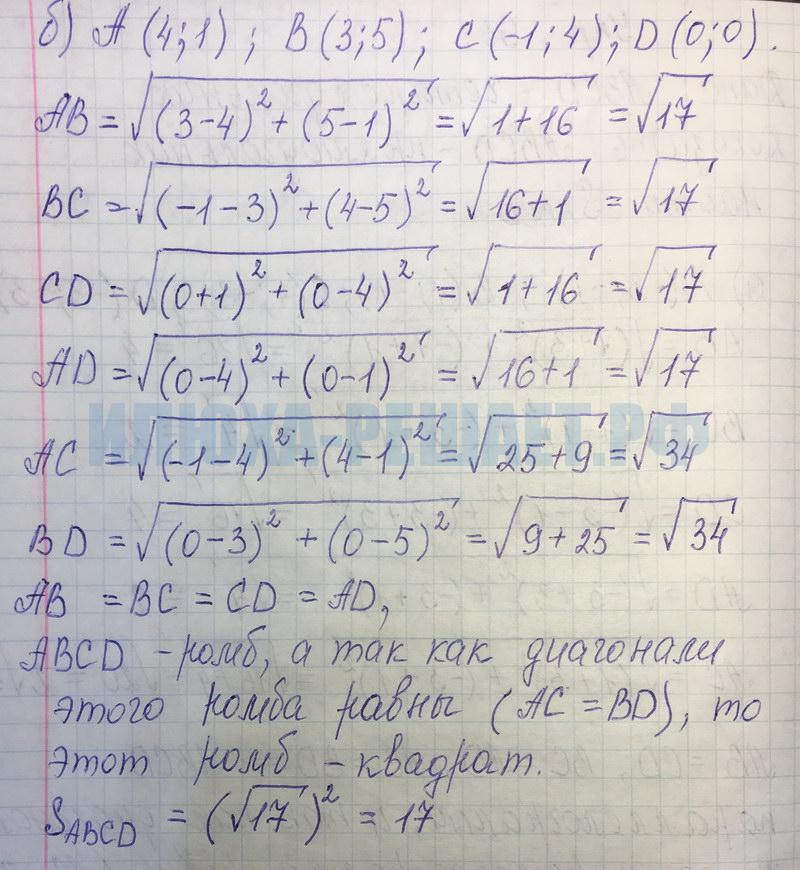 б) A (4;1) ; B (3;5) ; C (-1;4) ; D (0;0).
AB = √((3-4)² + (5-1)²) = √(1+16) = √17
BC = √((-1-3)² + (4-5)²) = √(16+1) = √17
CD = √((0+1)² + (0-4)²) = √(1+16) = √17
AD = √((0-4)² + (0-1)²) = √(16+1) = √17
ИЛЮХА-РЕШАЕТ.РФ
AC = √((-1-4)² + (4-1)²) = √(25+9) = √34
BD = √((0-3)² + (0-5)²) = √(9+25) = √34
AB = BC = CD = AD,
ABCD - ромб, а так как диагонали
этого ромба равны (AC = BD), то
этот ромб - квадрат.
S_ABCD = (√17)² = 17